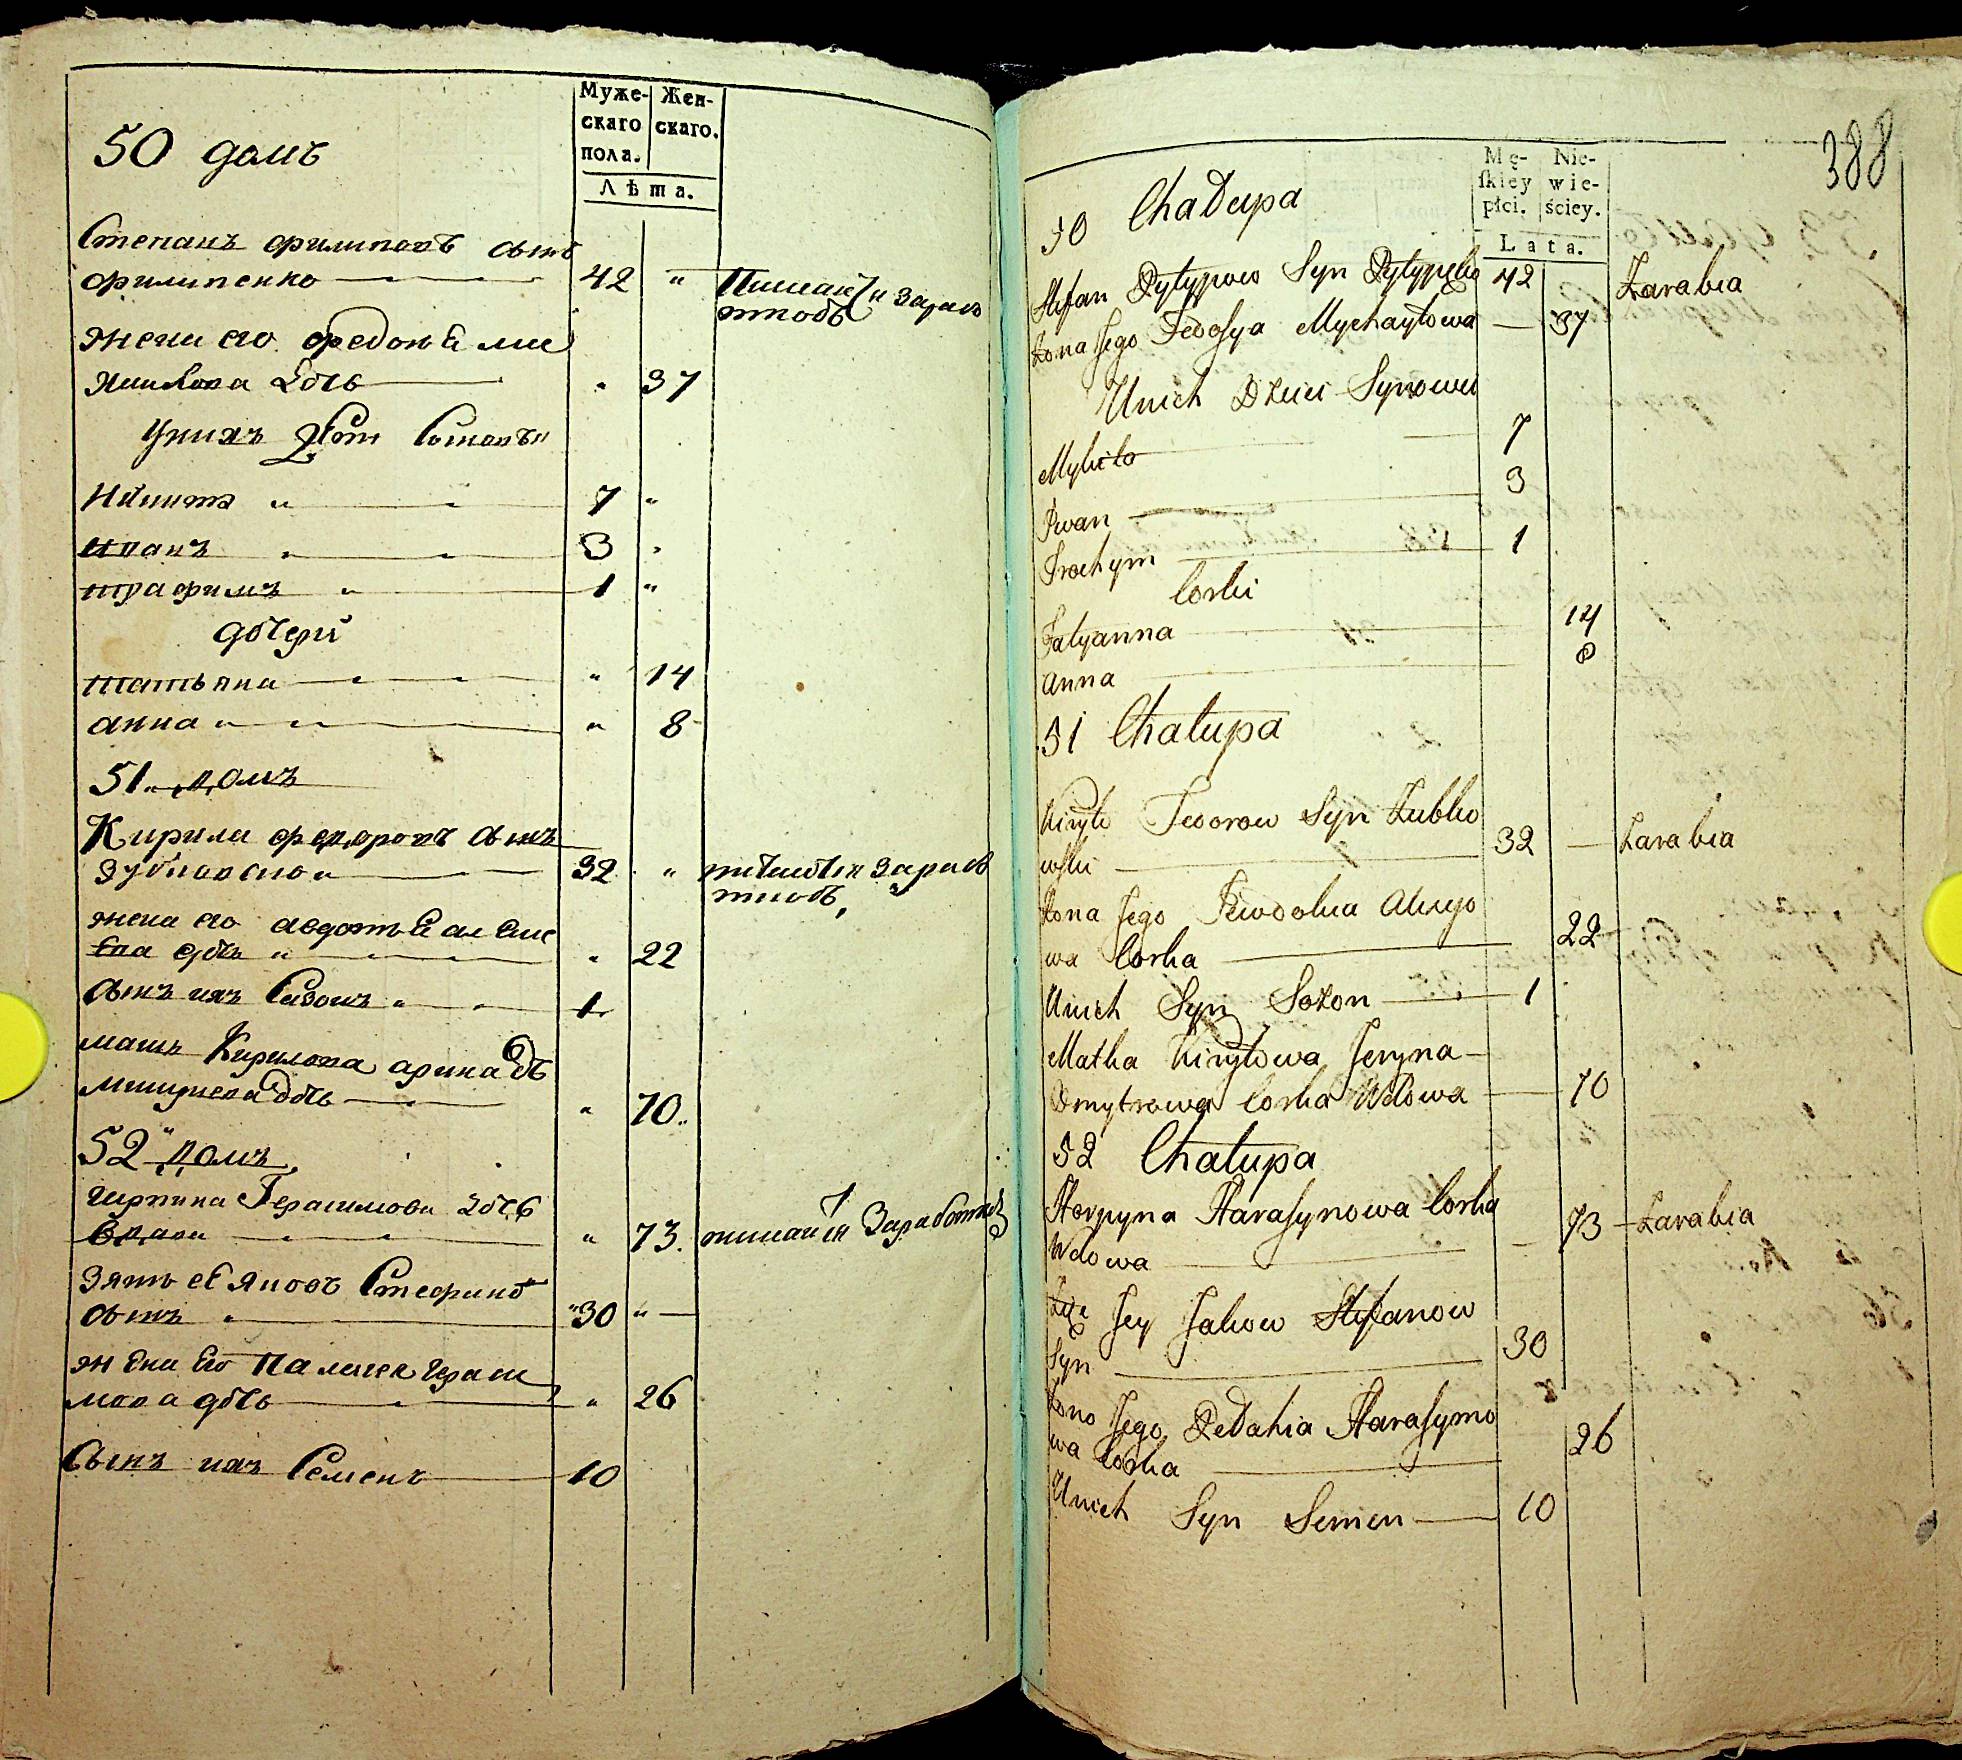 Муже-
скаго
пола.
Жен-
скаго.
Лѣта.
50 домъ
Степанъ филиповъ сынъ
филипенко 42 "
жена его федосья ми
хаилова дочь " 37
у нихъ дети
Никита " 7 "
Иванъ 3 "
трафимъ " 1 "
дочери
татьяна " 14
анна " " 8
51 " домъ
Кирила федоровъ сынъ
32 "
жена его авдотья але
ева дочь " " 22
сынъ ихъ Сазонъ " 1
мать Кирилова арина вд
дочь " 70
52 " домъ
Герасимова дочь
вдова " 73 питаится заработком
зять её яковъ Стефановъ
сынъ " "30 "
жена его Палагея гераси
мова дочь " 26
Сынъ ихъ Семенъ 10
388
Mę-
skiey
płci.
Nie-
wie-
ściey.
Lata.
50 Chałupa
Stefan Fylypow Syn Fylypeko 42 Zarabia
Zona Jego Fedosya Mychayłowa — 37
Unich Dzieci Synowie
Mykito 7
Iwan 3
Trochym 1
Corki
Tatyanna 14
Anna 8
51 Chałupa
Kiryło Fedorow Syn Zubko
wski 32 — Zarabia
Zona Jego Fewdokia
wa Corka 22
Unich Syn Sozon 1
Matka Kiryłowa Jeryna
Dmytrowa Corka Wdowa 70
52 Chałupa
Horpyna Harasymowa Corka 73 Zarabia
Wdowa
Zięć Jey Jakow Stefanow
Syn 30
Zona Jego Pełahia Harasymo
wa Corka 26
Unich Syn Semen 10